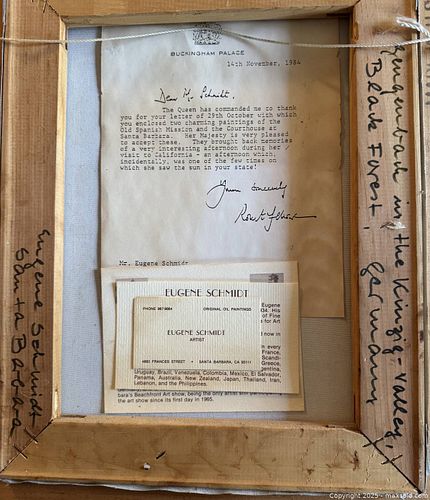 BUCKINGHAM PALACE
14th November, 1984
Dear Mr Schmidt,
The Queen has commanded me to thank
you for your letter of 29th October with which
you enclosed two charming paintings of the
Old Spanish Mission and the Courthouse at
Santa Barbara. Her Majesty is very pleased
to accept these. They brought back memories
of a very interesting afternoon during her
visit to California - an afternoon which,
incidentally, was one of the few times on
which she saw the sun in your state!
Yours sincerely
Mr. Eugene Schmidt
EUGENE SCHMIDT
PHONE
ORIGINAL OIL PAINTINGS
EUGENE SCHMIDT
ARTIST
FRANCES STREET • SANTA BARBARA, CA
Eugene
His
of Fine
for Art
now in
every
France,
Scandi-
Greece,
Uruguay, Brazil, Venezuela, Colombia, Mexico, El Salvador,
Panama, Australia, New Zealand, Japan, Thailand, Iran,
Lebanon, and the Philippines.
bara's Beachfront Art show, being the only artist
the art show since its first day in 1965.
Gengenbach in the Kinzig-Valley
Black Forest, Germany
Eugene Schmidt
Santa Barbara
Copyright 2025 - maxsold.com